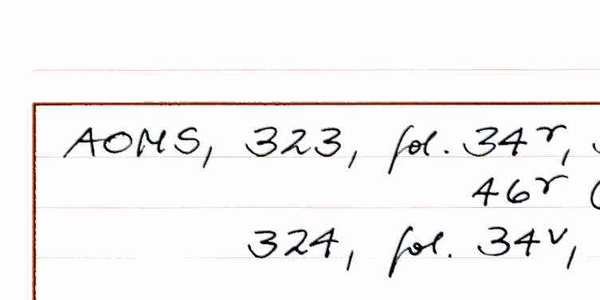 AOMS, 323, fol. 34r,
46r (
324, fol. 34v,